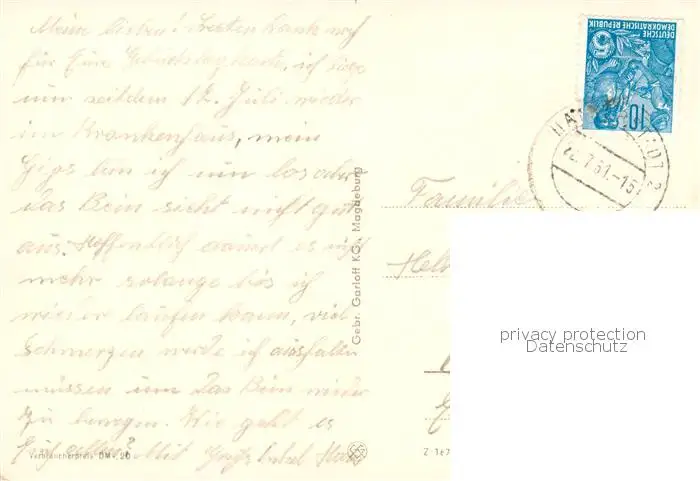 Meine Lieben! Besten Dank noch
für Eure Geburtstagskarte, ich liege
nun seitdem 12. Juli wieder
im Krankenhaus, mein
Gips bin ich nun los aber
das Bein sieht nicht gut
aus. Hoffentlich dauert es nicht
mehr solange bis ich
wieder laufen kann, viel
Schmerzen werde ich aushalten
müssen um das Bein wieder
zu bewegen. Wie geht es
Euch allen? Mit Gruß
Verbraucherpreis DM -.20
Gebr. Garloff KG, Magdeburg
DEUTSCHE
DEMOKRATISCHE REPUBLIK
10
.7.61.-15
Familie
Hel
Z 167
privacy protection
Datenschutz